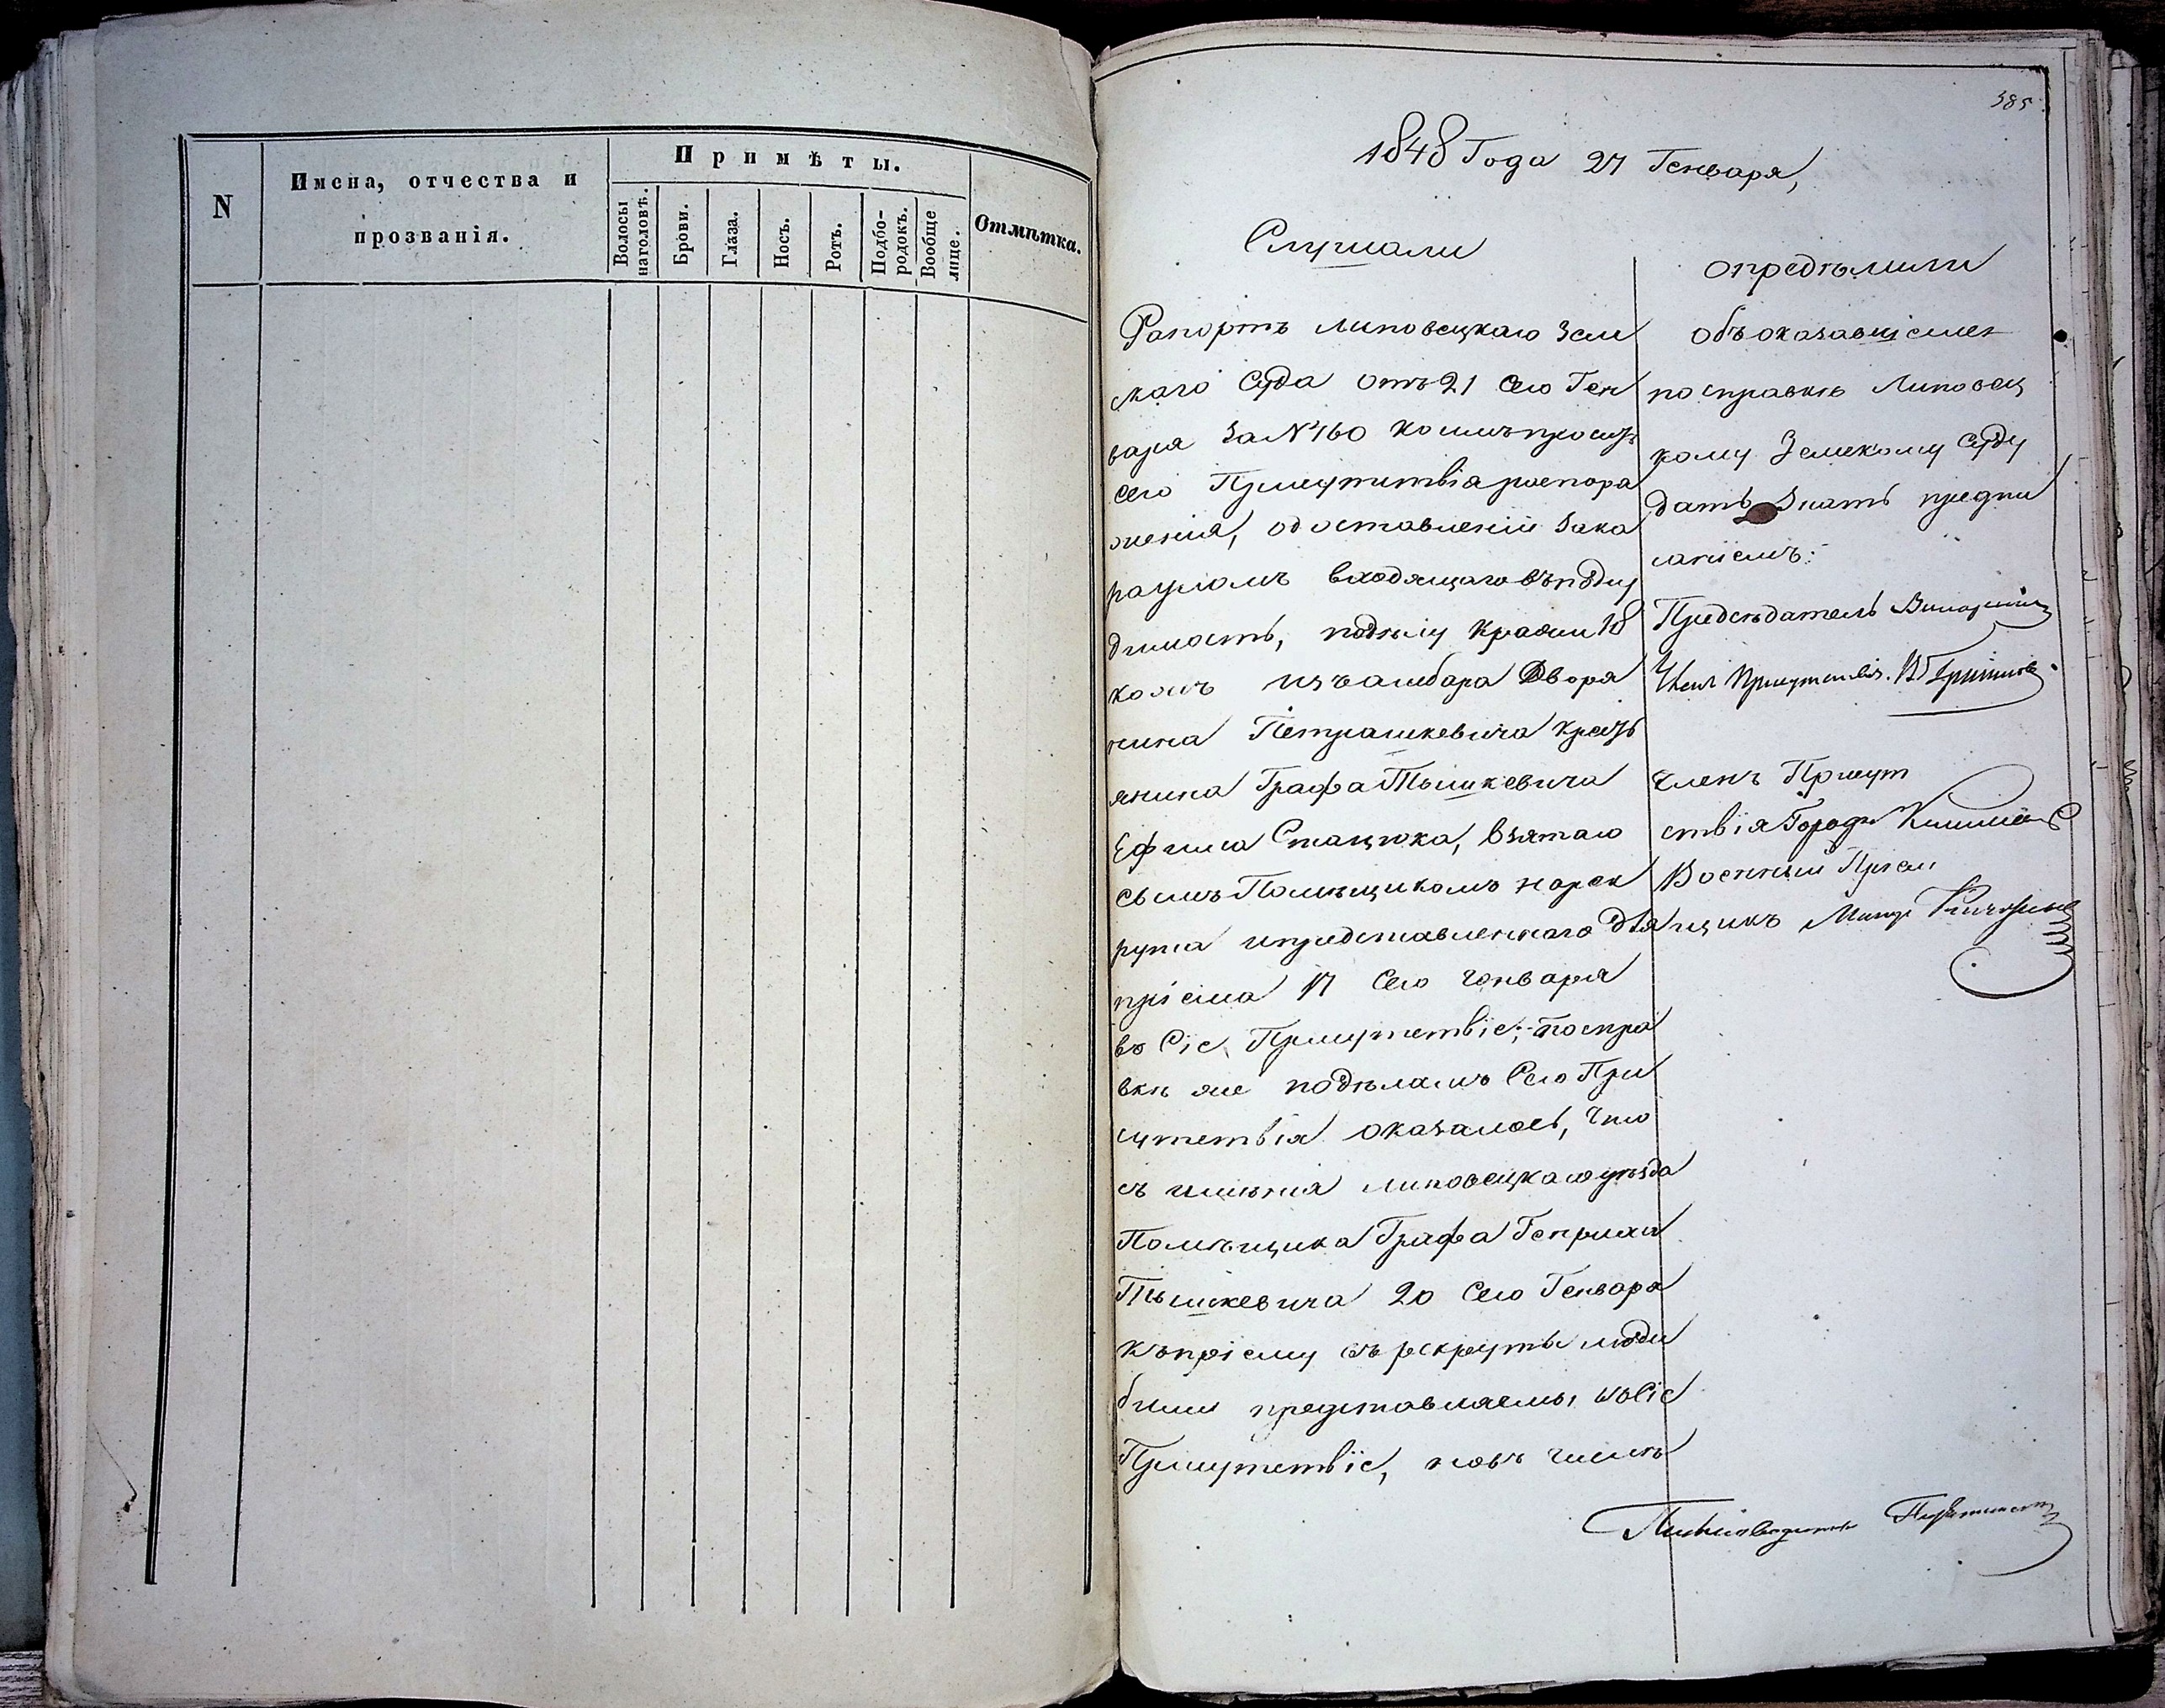 N
Имена, отчества и
прозванія.
Примѣты.
Волосы
наголовѣ.
Брови.
Глаза.
Носъ.
Ротъ.
Подбо-
родокъ.
Вообще
лице.
Отмѣтка.
385
1848 Года 27 Генваря,
Слушали
Рапортъ Липовецкаго Зем
скаго Суда отъ 21 сего Ген
варя за № 160 коимъ проситъ
сего Присутствія распоря
женія, о доставленіи за ка
рауломъ входящаго въ подсу
димость, по дѣлу кражи 18
кожъ изъ амбара Дворя
нина Петрашкевича крестъ
янина Графа Тышкевича
Ефима Стацюка, взятаго
симъ Помѣщикомъ на рек
рута и представленнаго для
пріема 17 сего Генваря
въ Сіе Присутствіе; по спра
вкѣ же по дѣламъ Сего При
сутствія оказалось, что
съ имѣнія Липовецкаго уѣзда
Помѣщика Графа Генриха
Тышкевича 20 сего Генваря
къ пріему въ рекруты люди
были представляемы въ Сіе
Присутствіе, но въ числѣ
опредѣлили
объ оказавшiемся
по справкѣ Липовец
кому Земскому Суду
дать знать предпи
саніемъ:
Предсѣдатель
Член Присутствія.
Членъ Присут
ствія Городн
Военный Пріем
щикъ Маіоръ